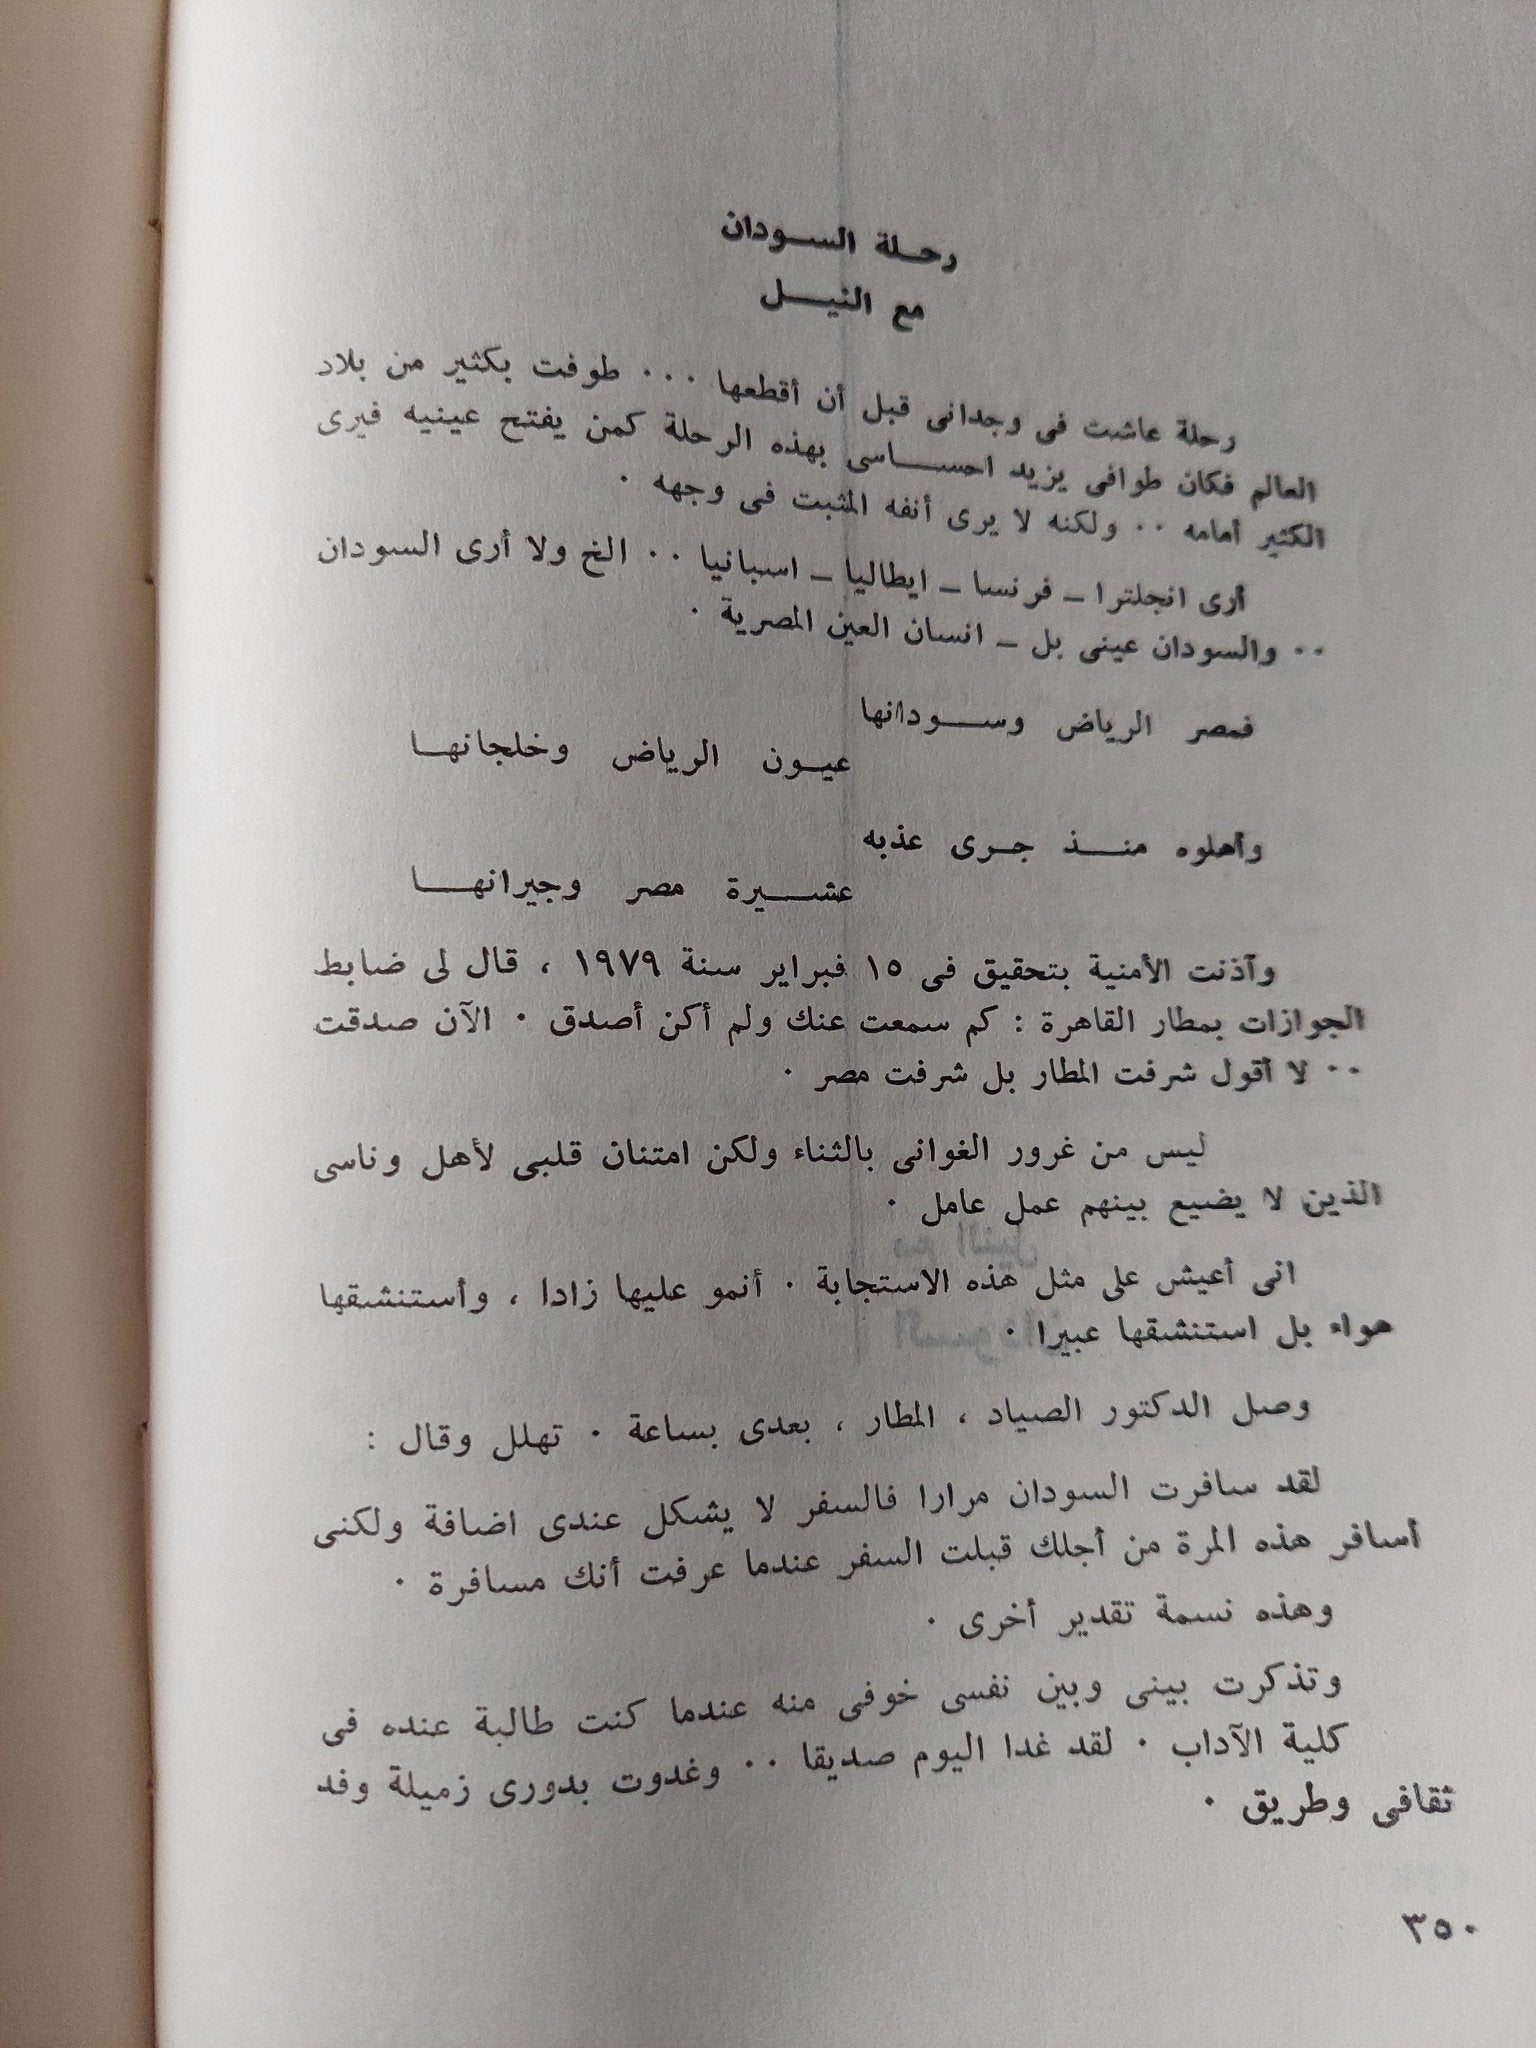 رحلة السودان
مع النيل
رحلة عاشت فى وجدانى قبل أن أقطعها ٠٠٠ طوفت بكثير من بلاد
العالم فكان طوافى يزيد احساسى بهذه الرحلة كمن يفتح عينيه فيرى
الكثير أمامه ٠٠ ولكنه لا يرى أنفه المثبت فى وجهه ٠
أرى انجلترا ــ فرنسا ــ ايطاليا ــ اسبانيا ٠٠ الخ ولا أرى السودان
٠٠ والسودان عينى بل ــ انسان العين المصرية ٠
فمصر الرياض وسودانها
عيون الرياض وخلجانها
وأهلوه منذ جرى عذبه
عشيرة مصر وجيرانها
وآذنت الأمنية بتحقيق فى ١٥ فبراير سنة ١٩٧٩ ، قال لى ضابط
الجوازات بمطار القاهرة : كم سمعت عنك ولم أكن أصدق ٠ الآن صدقت
٠٠ لا أقول شرفت المطار بل شرفت مصر ٠
ليس من غرور الغوانى بالثناء ولكن امتنان قلبى لأهل وناسى
الذين لا يضيع بينهم عمل عامل ٠
انى أعيش على مثل هذه الاستجابة ٠ أنمو عليها زادا ، وأستنشقها
هواء بل استنشقها عبيرا ٠
وصل الدكتور الصياد ، المطار ، بعدى بساعة ٠ تهلل وقال :
لقد سافرت السودان مرارا فالسفر لا يشكل عندى اضافة ولكنى
أسافر هذه المرة من أجلك قبلت السفر عندما عرفت أنك مسافرة ٠
وهذه نسمة تقدير أخرى ٠
وتذكرت بينى وبين نفسى خوفى منه عندما كنت طالبة عنده فى
كلية الآداب ٠ لقد غدا اليوم صديقا ٠٠ وغدوت بدورى زميلة وفد
ثقافى وطريق ٠
٣٥٠